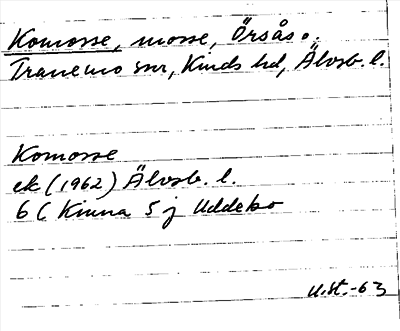 Komosse, mosse, Örsås o.
Tranemo snr, Kinds hd, Älvsb. l.
Komosse
ek (1962) Älvsb. l.
6 C Kinna 5 j Uddebo
U.st.-63